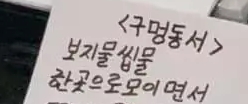 <구멍동서>
보지물씹물
한곳으로모이면서